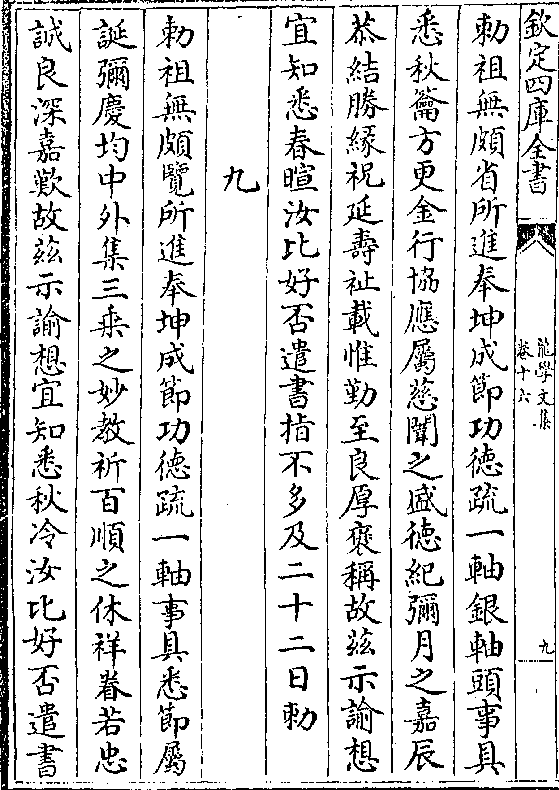 欽定四庫全書
龍學文集
卷十六
九
勅祖無頗省所進奉坤成節功德疏一軸銀軸頭事具
悉秋籥方更金行協應屬慈闈之盛德紀彌月之嘉辰
恭結勝緣祝延壽祉載惟勤至良厚襃稱故兹示諭想
宜知悉春暄汝比好否遣書指不多及二十二日勅
九
勅祖無頗覽所進奉坤成節功德疏一軸事具悉節屬
誕彌慶均中外集三乗之妙教祈百順之休祥眷若忠
誠良深嘉歎故兹示諭想宜知悉秋冷汝比好否遣書